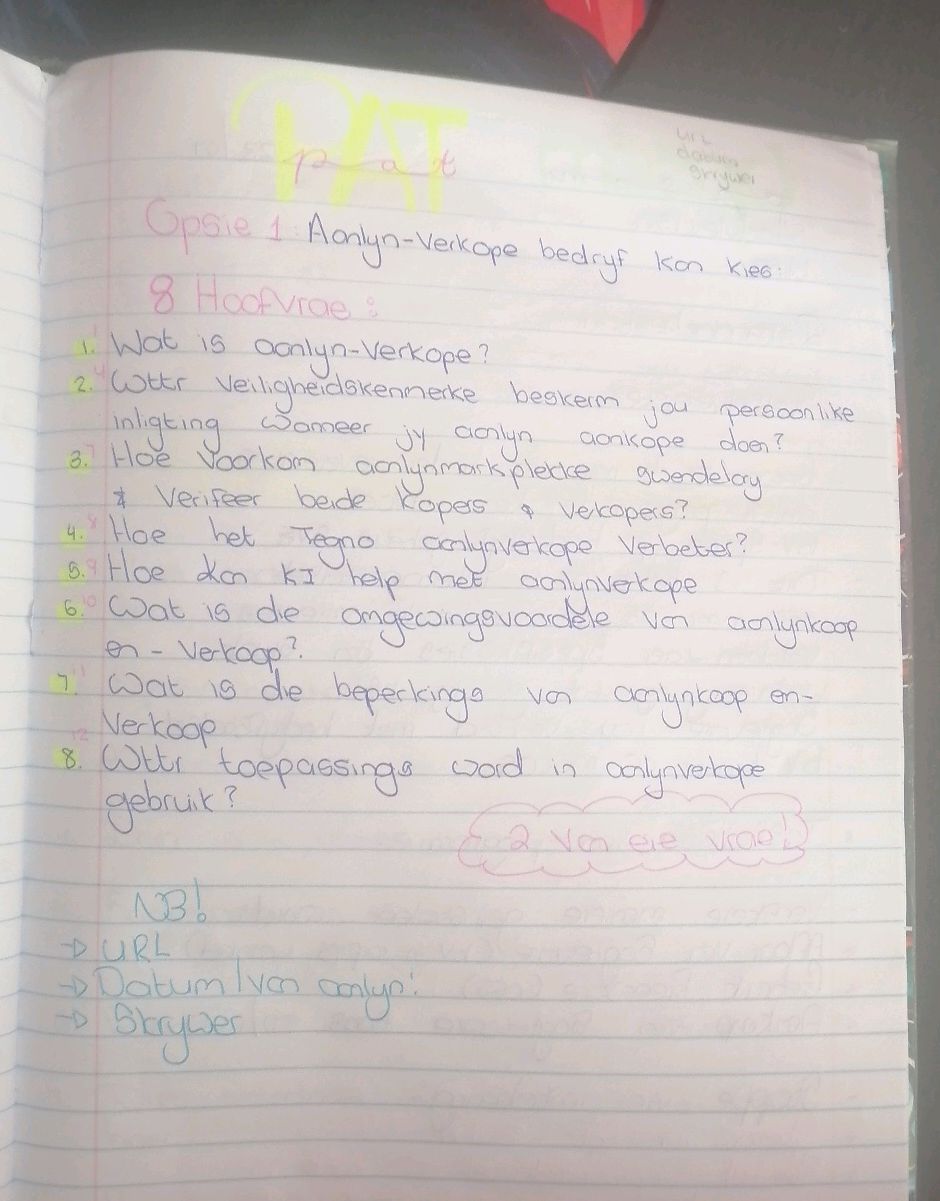 PAT
pat
URL
datum
skrywer
Opsie 1: Aanlyn-Verkope bedryf kan kies:
8 Hoofvrae:
1. Wat is aanlyn-Verkope?
2. 4 Wttr Veiligheidskenmerke beskerm jou persoonlike
inligting wanneer jy aanlyn aankope doen?
3. 7 Hoe Voorkom aanlynmarkplekke
& Verifeer beide Kopers & Verkopers?
4. 8 Hoe het Tegno aanlynverkope Verbeter?
5. 9 Hoe kan KI help met aanlynverkope
6. 10 Wat is die omgewingsvoordele van aanlynkoop
en - Verkoop?
7. 11 Wat is die beperkings van aanlynkoop en-
Verkoop
8. 12 Wttr toepassings word in aanlynverkope
gebruik?
2 Van eie vrae!
NB!
→ URL
→ Datum/van aanlyn!
→ Skrywer